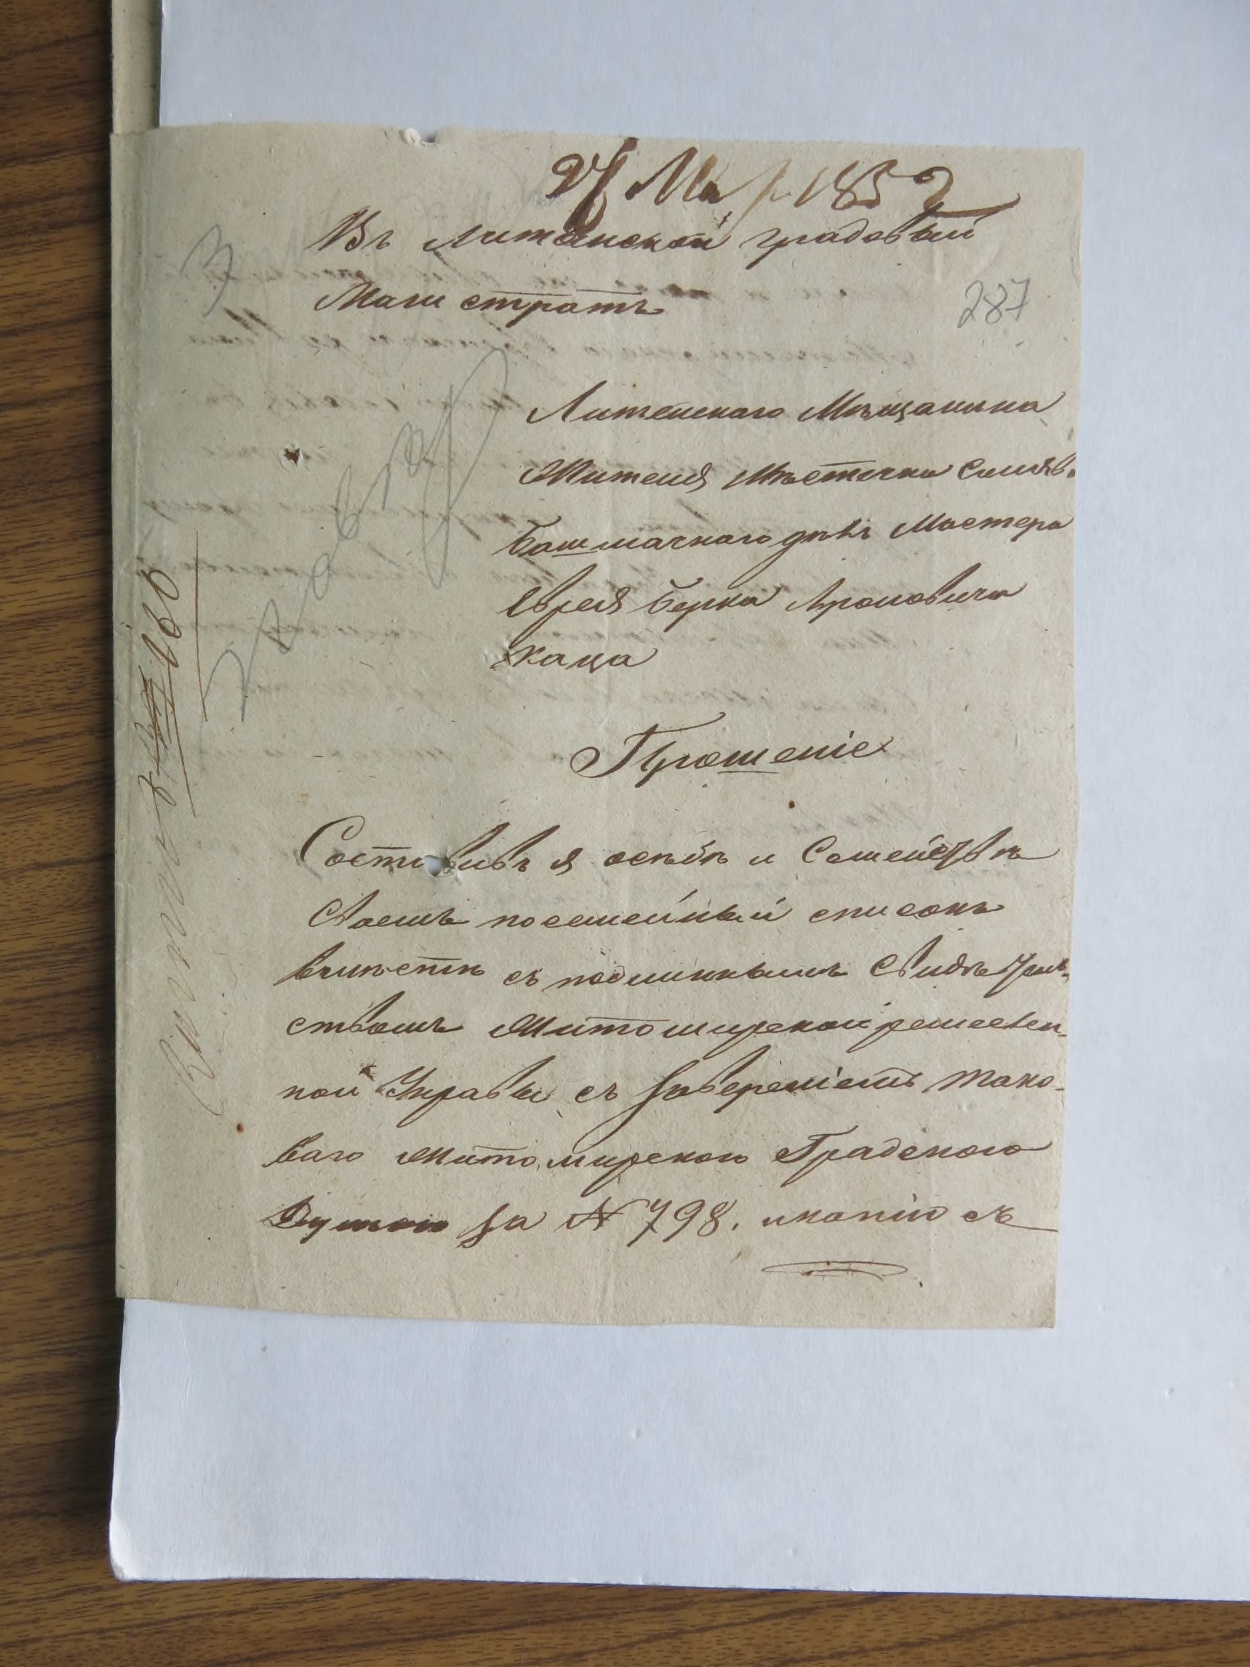 27 Мар 1852
Въ Литинской градовый
Магистратъ
287
Литенского Мѣщанина
Жителя Мѣстечка
Башмачного дѣлъ Мастера
Еврея Берка Ароновича
Каца
Прошеніе
Составивъ я осѣбѣ и Семействѣ
своемъ посемейный списокъ
вмѣстѣ съ подлиннымъ Свидѣтель-
ствомъ Житомирской ремеслен-
ной Управы съ заверeніемъ тако-
ваго Житомирского Градского
Думою за N 798. икопію съ
166